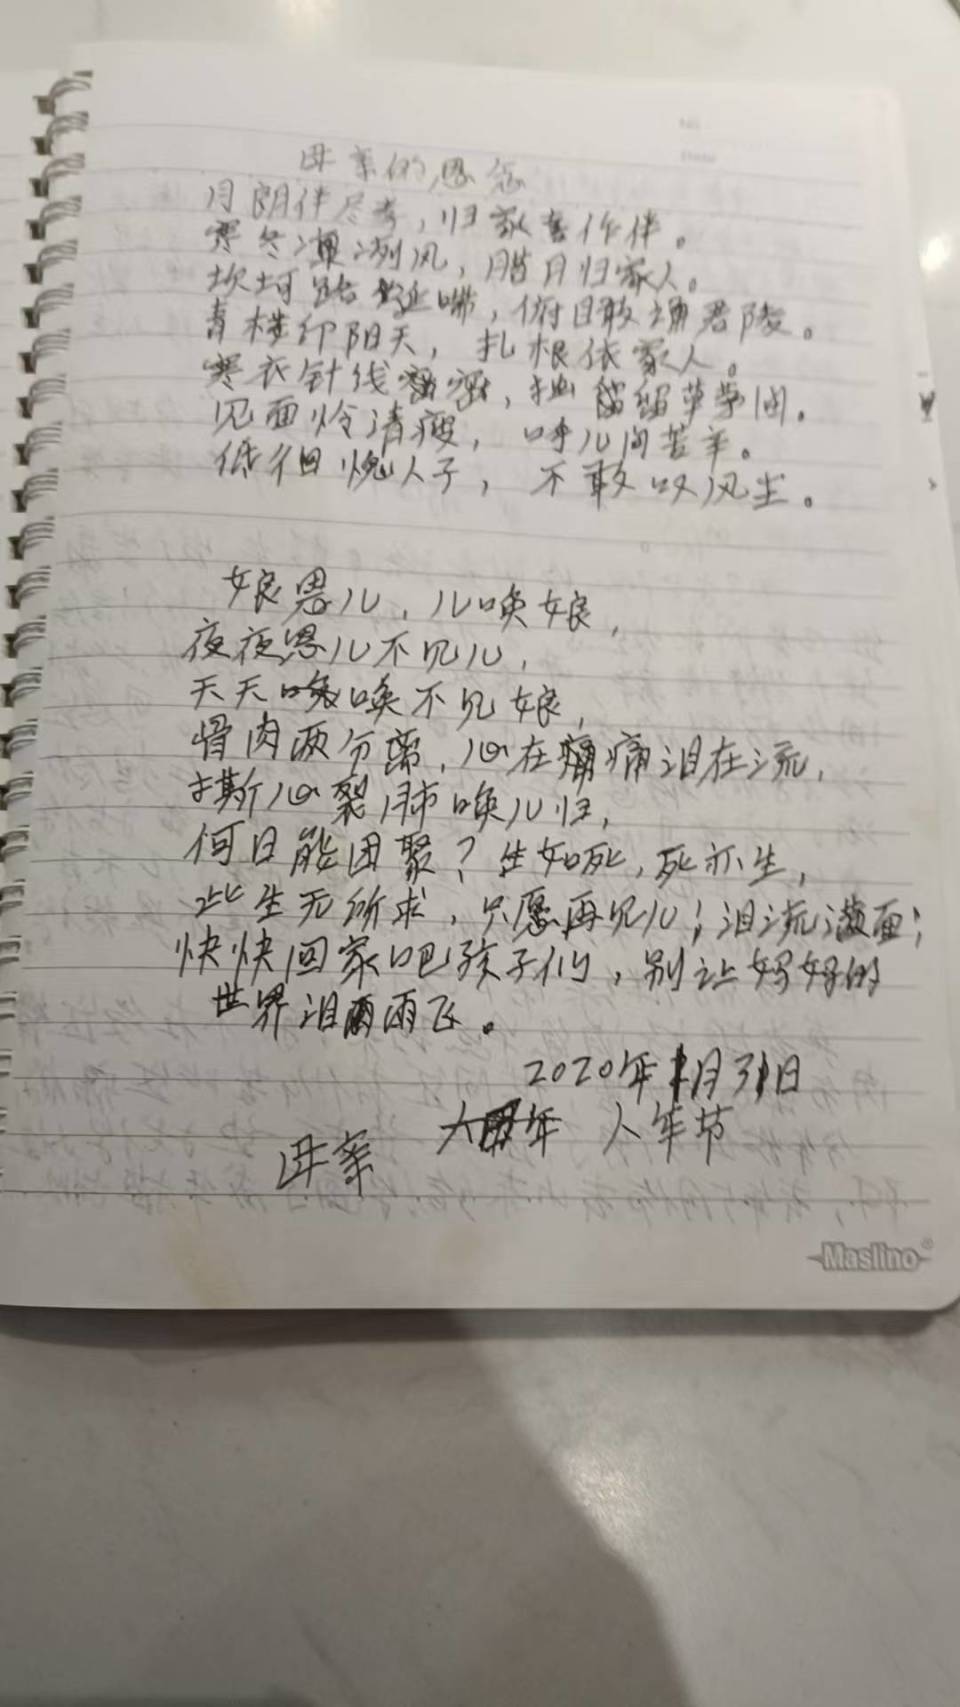 母亲的思念
月朗伴尽孝，归家喜作伴。
寒冬凛冽风，腊月归家人。
坎坷路 喘，俯目敢诵君陵。
青楼印阳天，扎根依家人。
寒衣针线密，拙留留草茅间。
见面怜清瘦，呼儿问苦辛。
低徊愧人子，不敢叹风尘。
娘思儿，儿唤娘，
夜夜思儿不见儿，
天天唤唤不见娘，
骨肉两分离，心在痛泪在流，
撕心裂肺唤儿归，
何日能团聚？生如死，死亦生，
此生无所求，只愿再见儿；泪流满面；
快快回家吧孩子们，别让妈妈的
世界泪雨飞。
2020年1月31日
人年节
母亲
Maslino